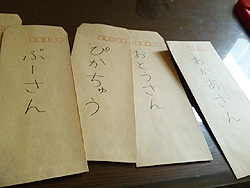 ぷーさん
ぴかちゅう
おとうさん
おかあさん